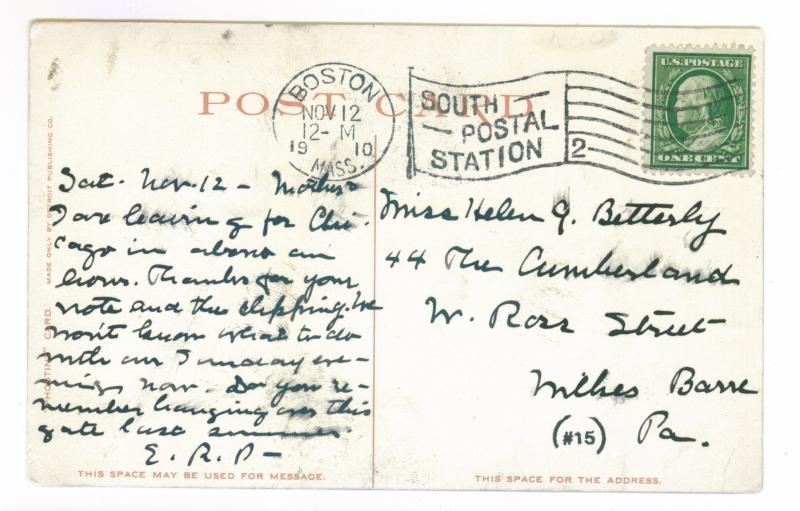 POST CARD
BOSTON
NOV 12
12-M
1910
MASS.
SOUTH
POSTAL
STATION
2
U.S. POSTAGE
ONE CENT
MADE ONLY BY DETROIT PUBLISHING CO.
"PHOSTINT" CARD.
Sat. Nov. 12 - Mother
I are leaving for Chi-
cago in about an
hour. Thanks for your
note and the clipping. We
won't know what to do
with our Sunday eve-
nings now. Do you re-
member hanging over this
gate last summer
E. R. P -
THIS SPACE MAY BE USED FOR MESSAGE.
Miss Helen G. Betterly
44 The Cumberland
W. Ross Street
Wilkes Barre
(#15) Pa.
THIS SPACE FOR THE ADDRESS.